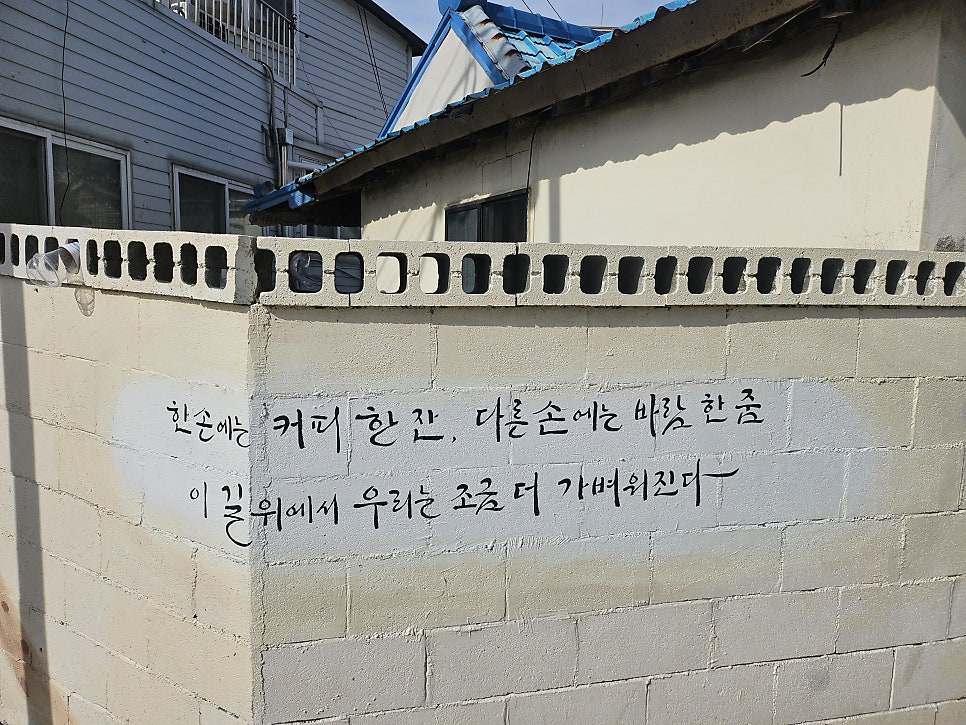 한 손에는 커피 한 잔, 다른 손에는 바람 한 줌
이 길 위에서 우리는 조금 더 가벼워진다~